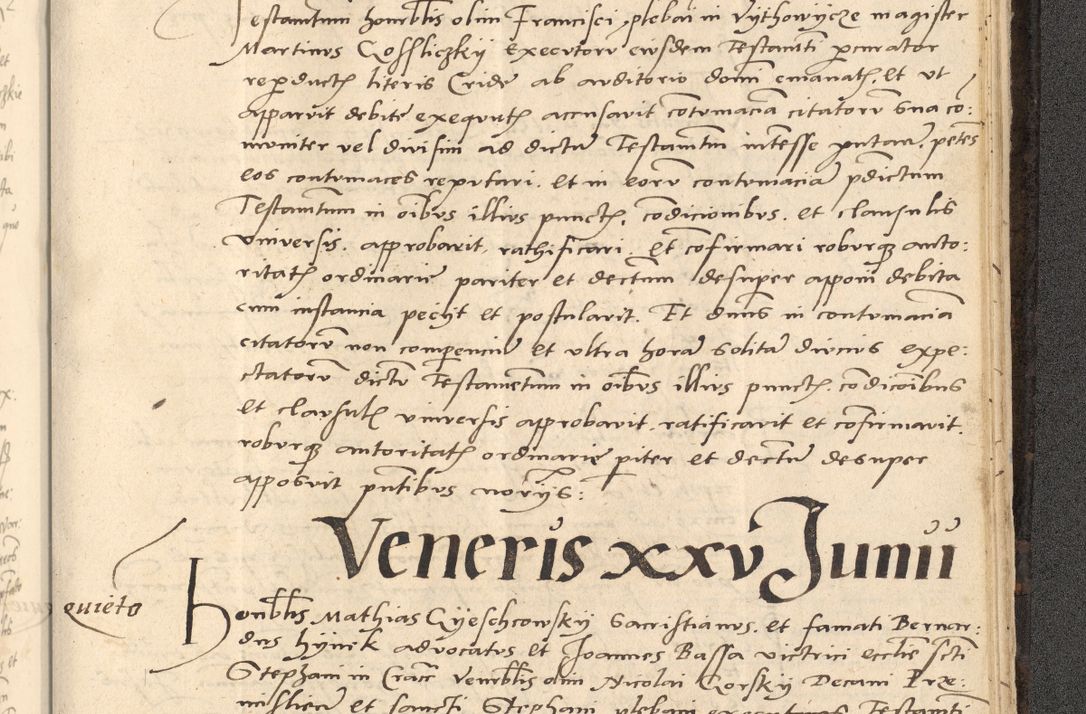 Testamentum honorabilis olim Francisci plebani in Vythowycze magister
Martinus Gossliczkij executorum eiusdem Testamenti procurator
reproductis literis Cride ab auditorio domini emanatis, et ut
apparuit debite exequutis accusavit cotumacia citatorum sua co:
muniter vel divisim ad dictum Testamtum interesse putan. petens
eos contumaces reputari. Et in eorum contumaciam pdictum
Testamtum in oibus illius punctis, codicionibus. et clausulis
universis. approbarit, rathificari. Et cofirmari roburque auto:
ritatis ordinarie pariter et decretum desuper apponi debita
cum instancia peciit et postularit. Et dnus in contumaciam
citatorum non comparencium et ultra horam solitam diucius expe:
ctatorum dictum Testamentum in oibus illius punctis. codicoibus
et clausulis universis approbavit. ratificavit et cofirmavit.
roburque autoritatis ordinarie piter et decretum desuper
apposuit pntibus norijs:
Veneris xxv Junii
quieto
Honorbilis Mathias Gyeschcowskij Sacristianus. et famati Bernar:
dus hynek advocatus et Joannes Bassa victrici ecclie scti
Stephani in Crac Venerbilis olim Nicolai Gorskij Decani Prze:
misliens et sancti Stephani plebani executores Testamti